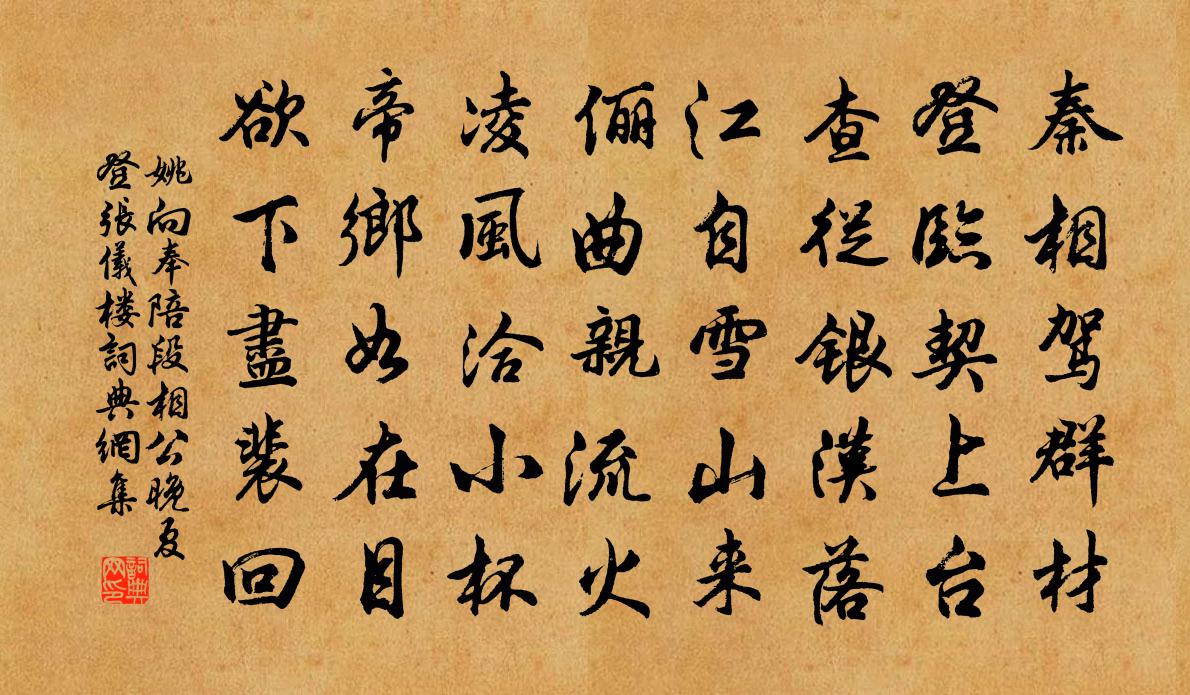 秦相駕群材
登臨契上台
查從銀漢落
江自雪山来
儷曲親流火
凌風洽小杯
帝鄉如在目
欲下盡裴回
姚向奉陪段相公晚夏
登張儀楼詞典網集
詞典网印